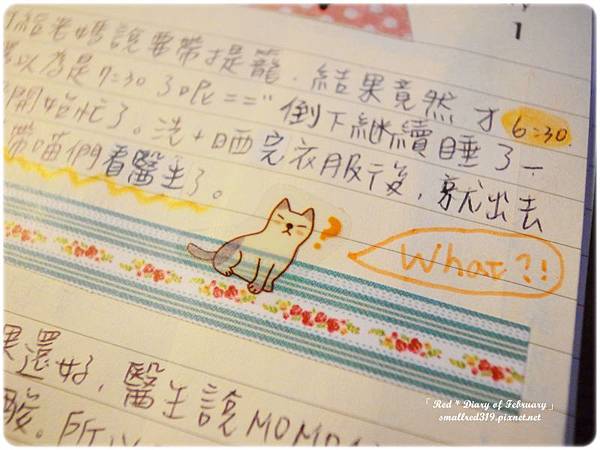 老媽說要帶提籠.結果竟然才6:30.
以為是7:30了呢=="倒下繼續睡了一
開始忙了。洗+晒完衣服後,就出去
帶喵們看醫生了。
?
What?!
還好,醫生說MOMO
酸。所以
1
「Red * Diary of February」
smallred319.pixnet.net